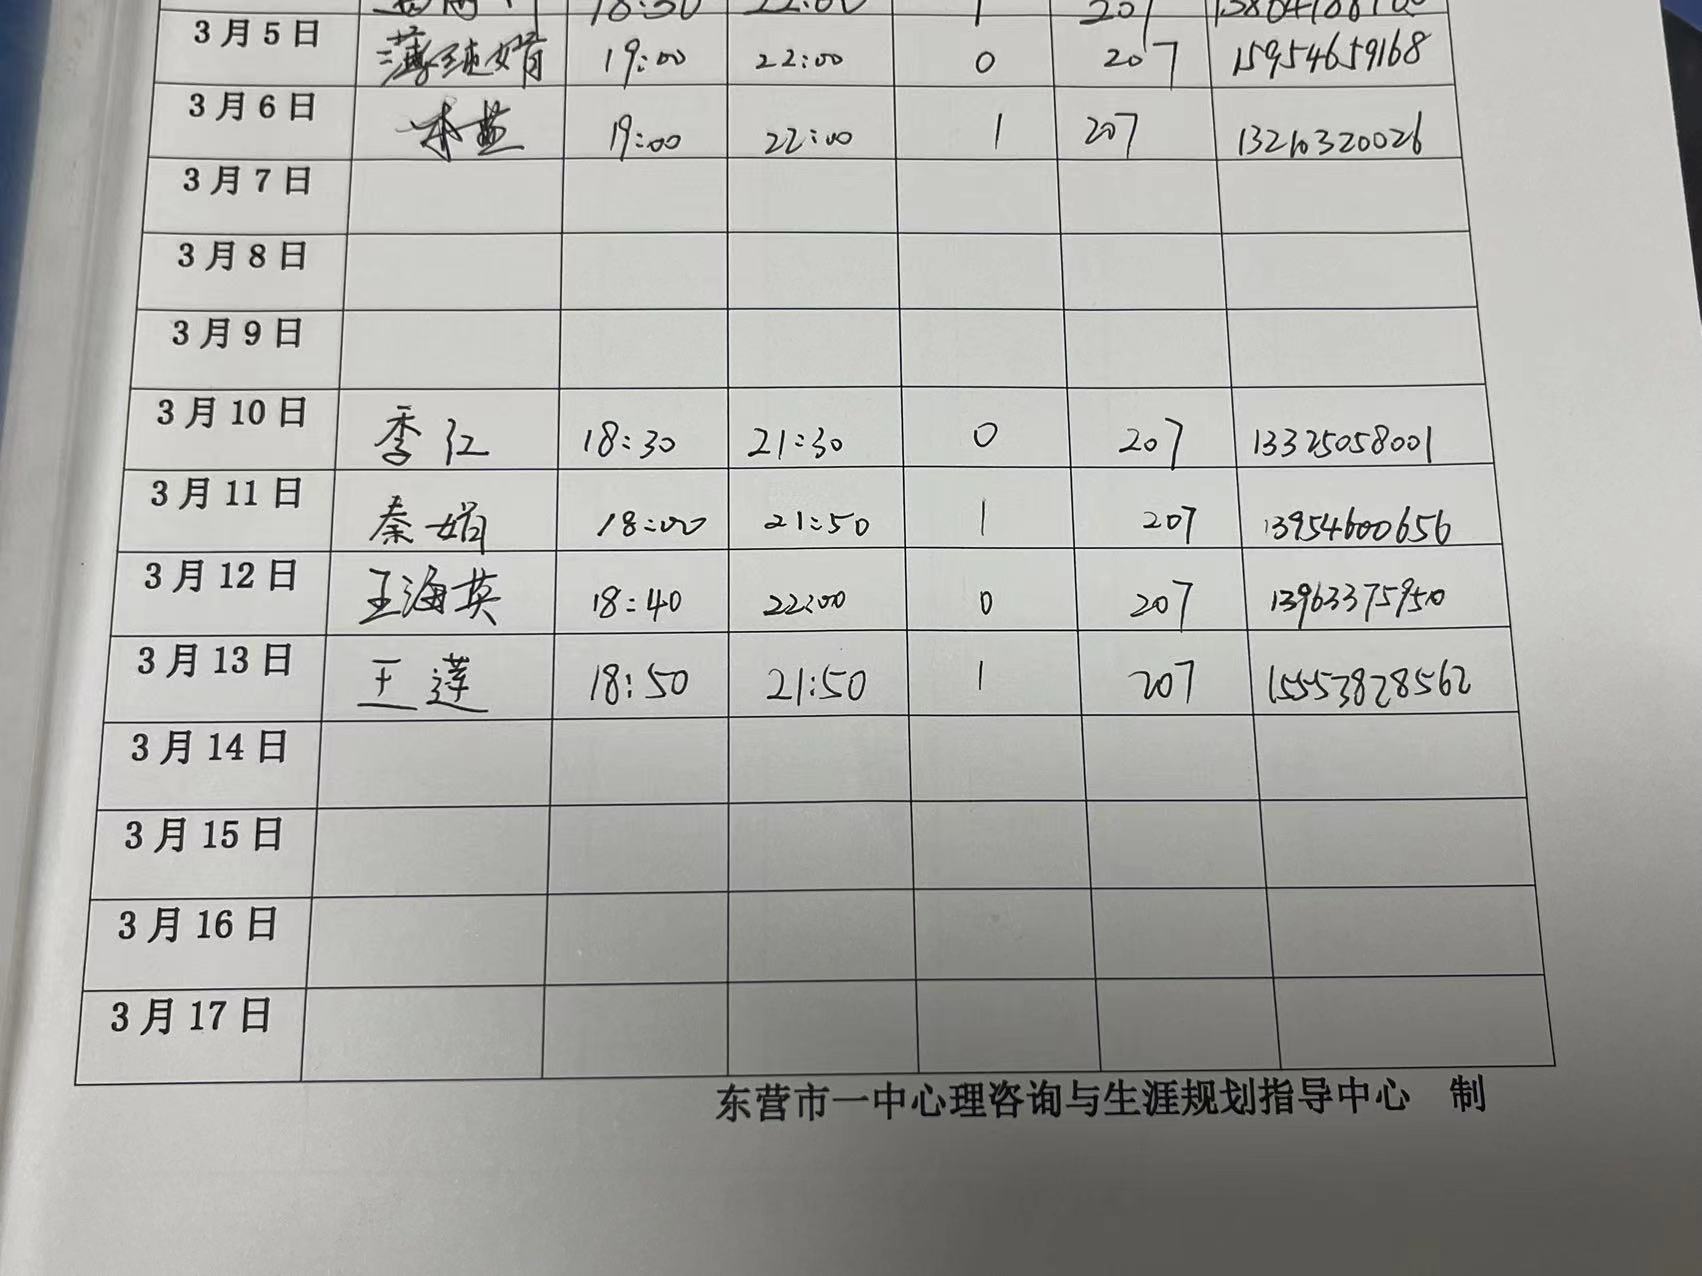 18:30 22:00 1 207
3月5日 薄纯娟 19:00 22:00 0 207 15954659168
3月6日 19:00 22:00 1 207 13210320026
3月7日
3月8日
3月9日
3月10日 季红 18:30 21:30 0 207 13325058001
3月11日 秦娟 18:00 21:50 1 207 13954600656
3月12日 王海英 18:40 22:00 0 207 13963375950
3月13日 王莲 18:50 21:50 1 207 15553828562
3月14日
3月15日
3月16日
3月17日
东营市一中心理咨询与生涯规划指导中心 制